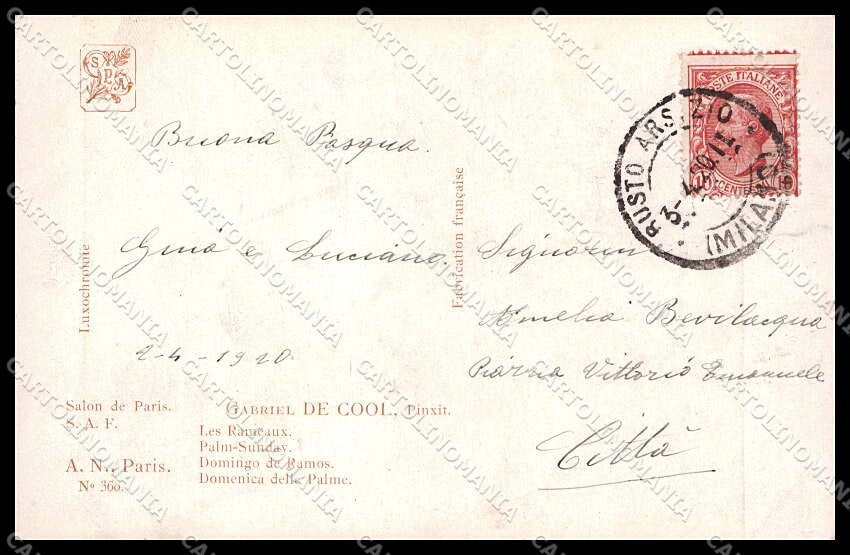 S P A
Buona Pasqua.
Gina e Luciano
2-4-1920.
Luxochromie
Fabrication française
POSTE ITALIANE
CENTE
BUSTO ARSIZIO
(MILANO)
Amelia Bevilacqua
Piazza Vittorio Emanuele
Città
Salon de Paris.
S. A. F.
A. N., Paris.
Nº 360.
GABRIEL DE COOL, Pinxit.
Les Rameaux.
Palm-Sunday.
Domingo de Ramos.
Domenica delle Palme.
CARTOLINOMANIA